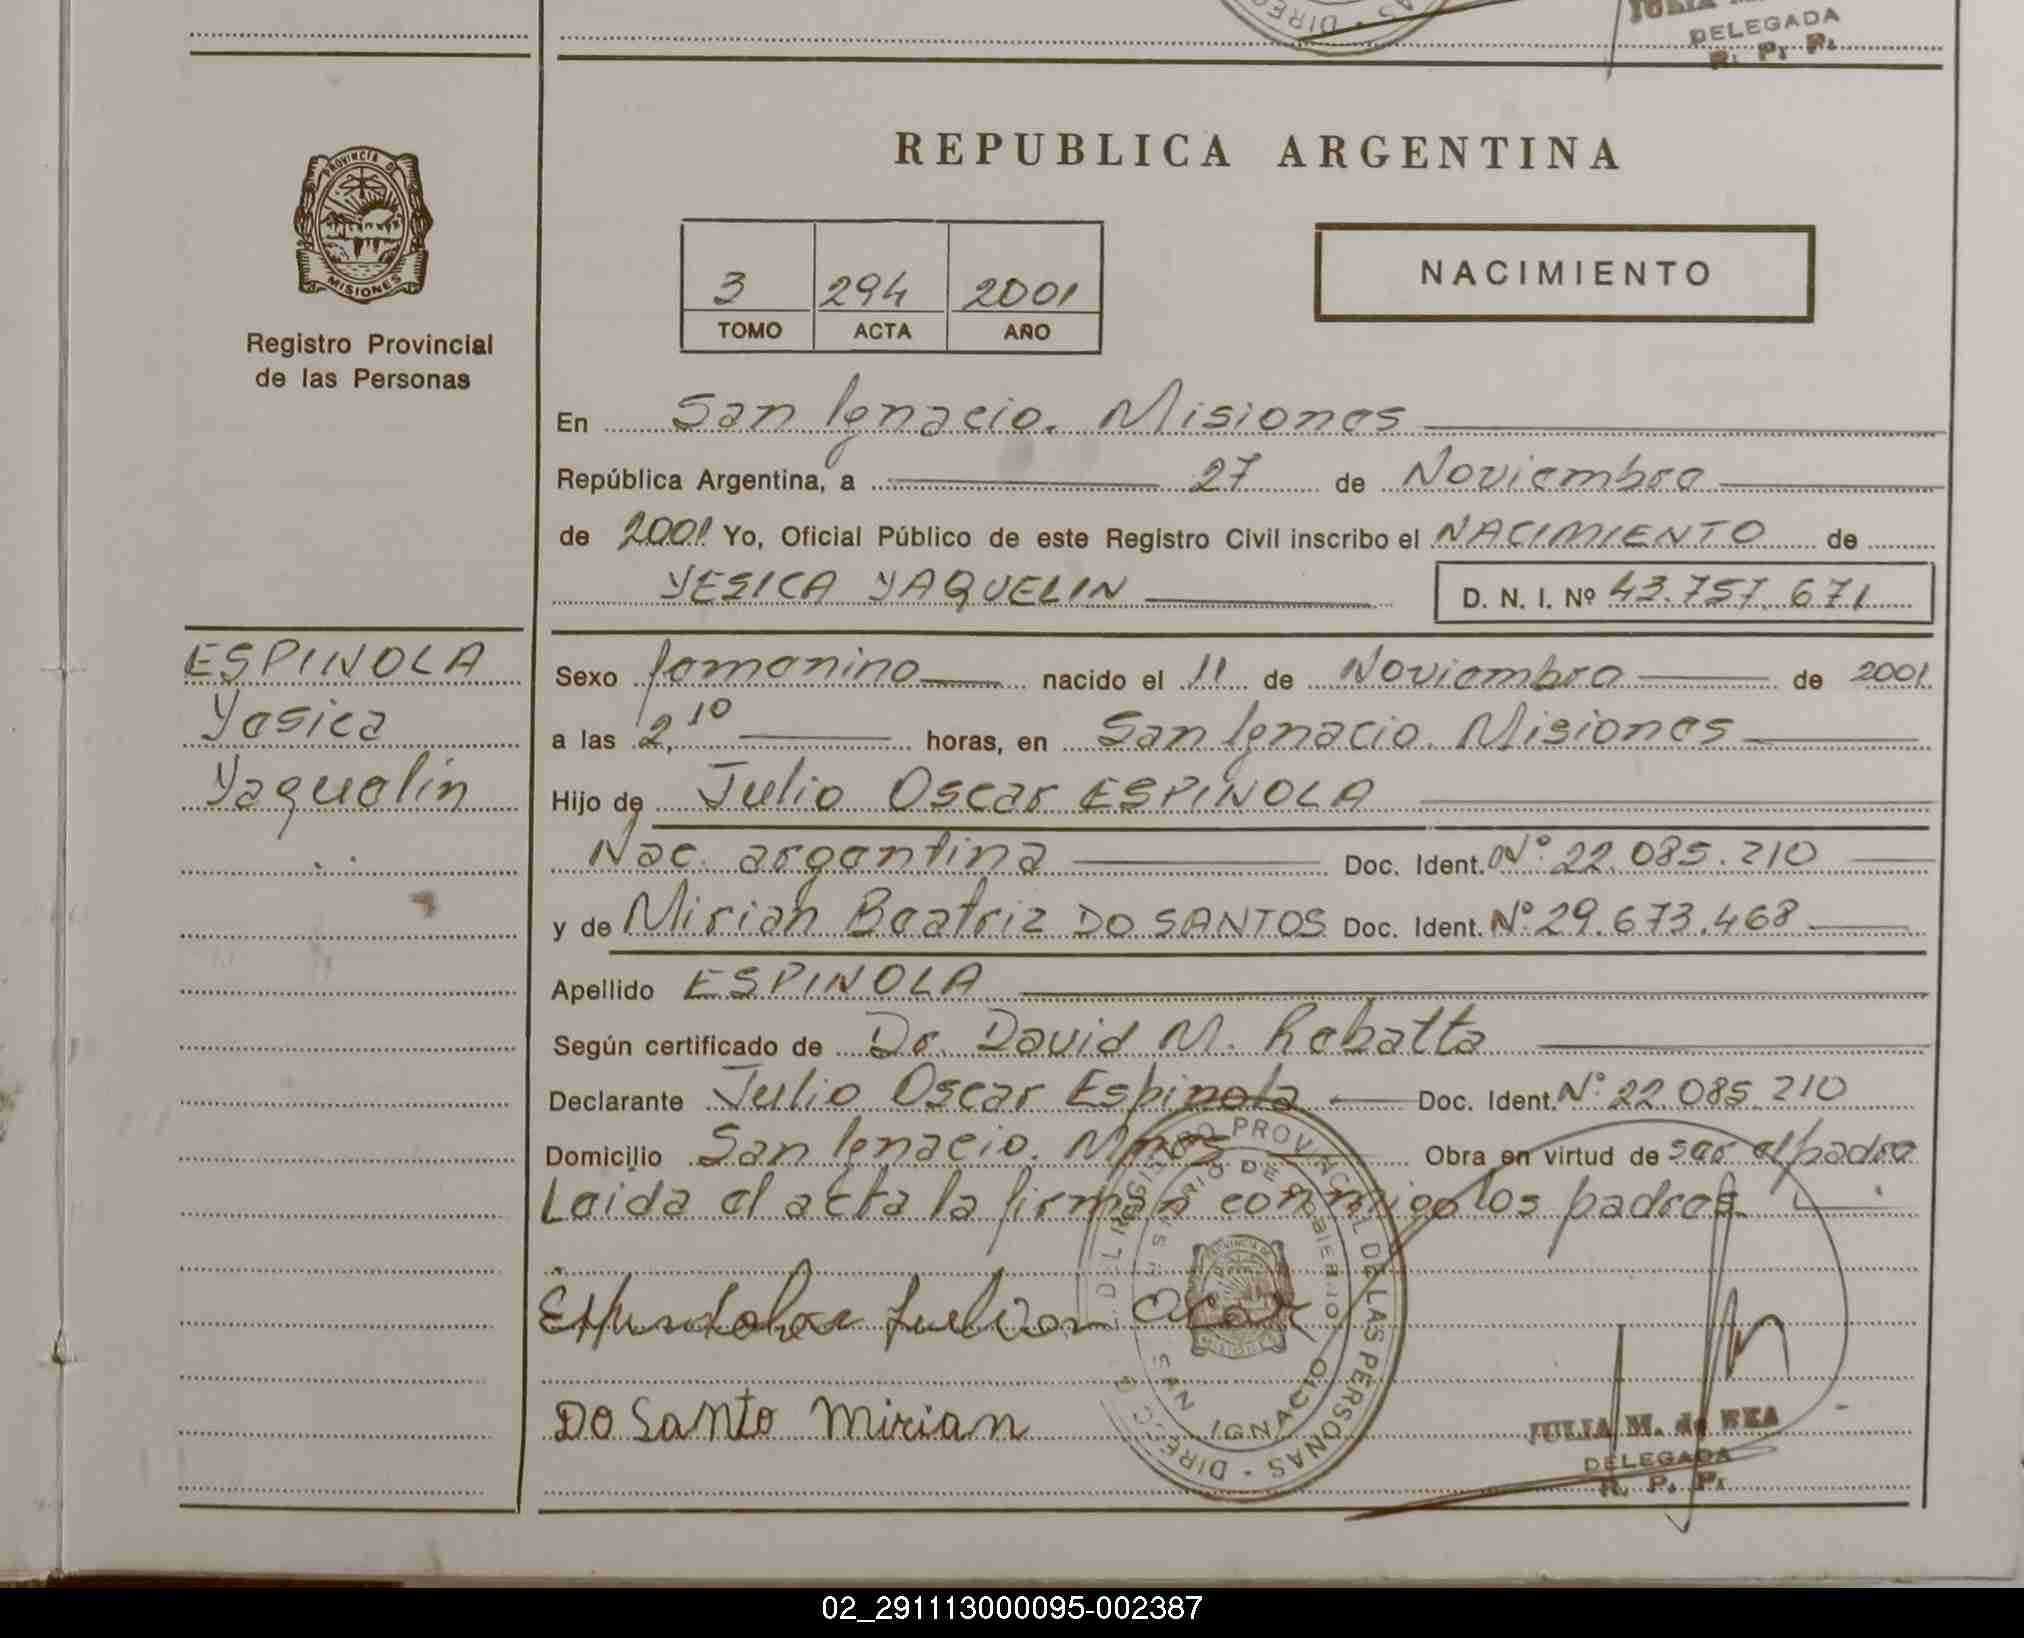 JULIA
DELEGADA
R. P. P.
REPUBLICA ARGENTINA
PROVINCIA DE
MISIONES
Registro Provincial
de las Personas
3 294 2001
TOMO ACTA AÑO
NACIMIENTO
En San Ignacio. Misiones
República Argentina, a 27 de Noviembre
de 2001 Yo, Oficial Público de este Registro Civil inscribo el NACIMIENTO de
YESICA YAQUELIN D. N. I. Nº 43.757.671
ESPINOLA
Yesica
Yaquelin
Sexo femenino nacido el 11 de Noviembre de 2001
a las 2,10 horas, en San Ignacio. Misiones
Hijo de Julio Oscar ESPINOLA
Nac. argentina Doc. Ident. Nº 22.085.210
y de Mirian Beatriz DO SANTOS Doc. Ident. Nº 29.673.468
Apellido ESPINOLA
Según certificado de Dr. David M. Rebatta
Declarante Julio Oscar Espinola Doc. Ident. Nº 22.085.210
Domicilio San Ignacio. Mnes Obra en virtud de ser el padre
Leida el acta la firman conmigo los padres.
DIRECC. G. DEL REGISTRO PROVINCIAL DE LAS PERSONAS
MINISTERIO DE GOBIERNO
SAN IGNACIO
DO SANTO Mirian
JULIA M. de REA
DELEGADA
R. P. P.
02_291113000095-002387